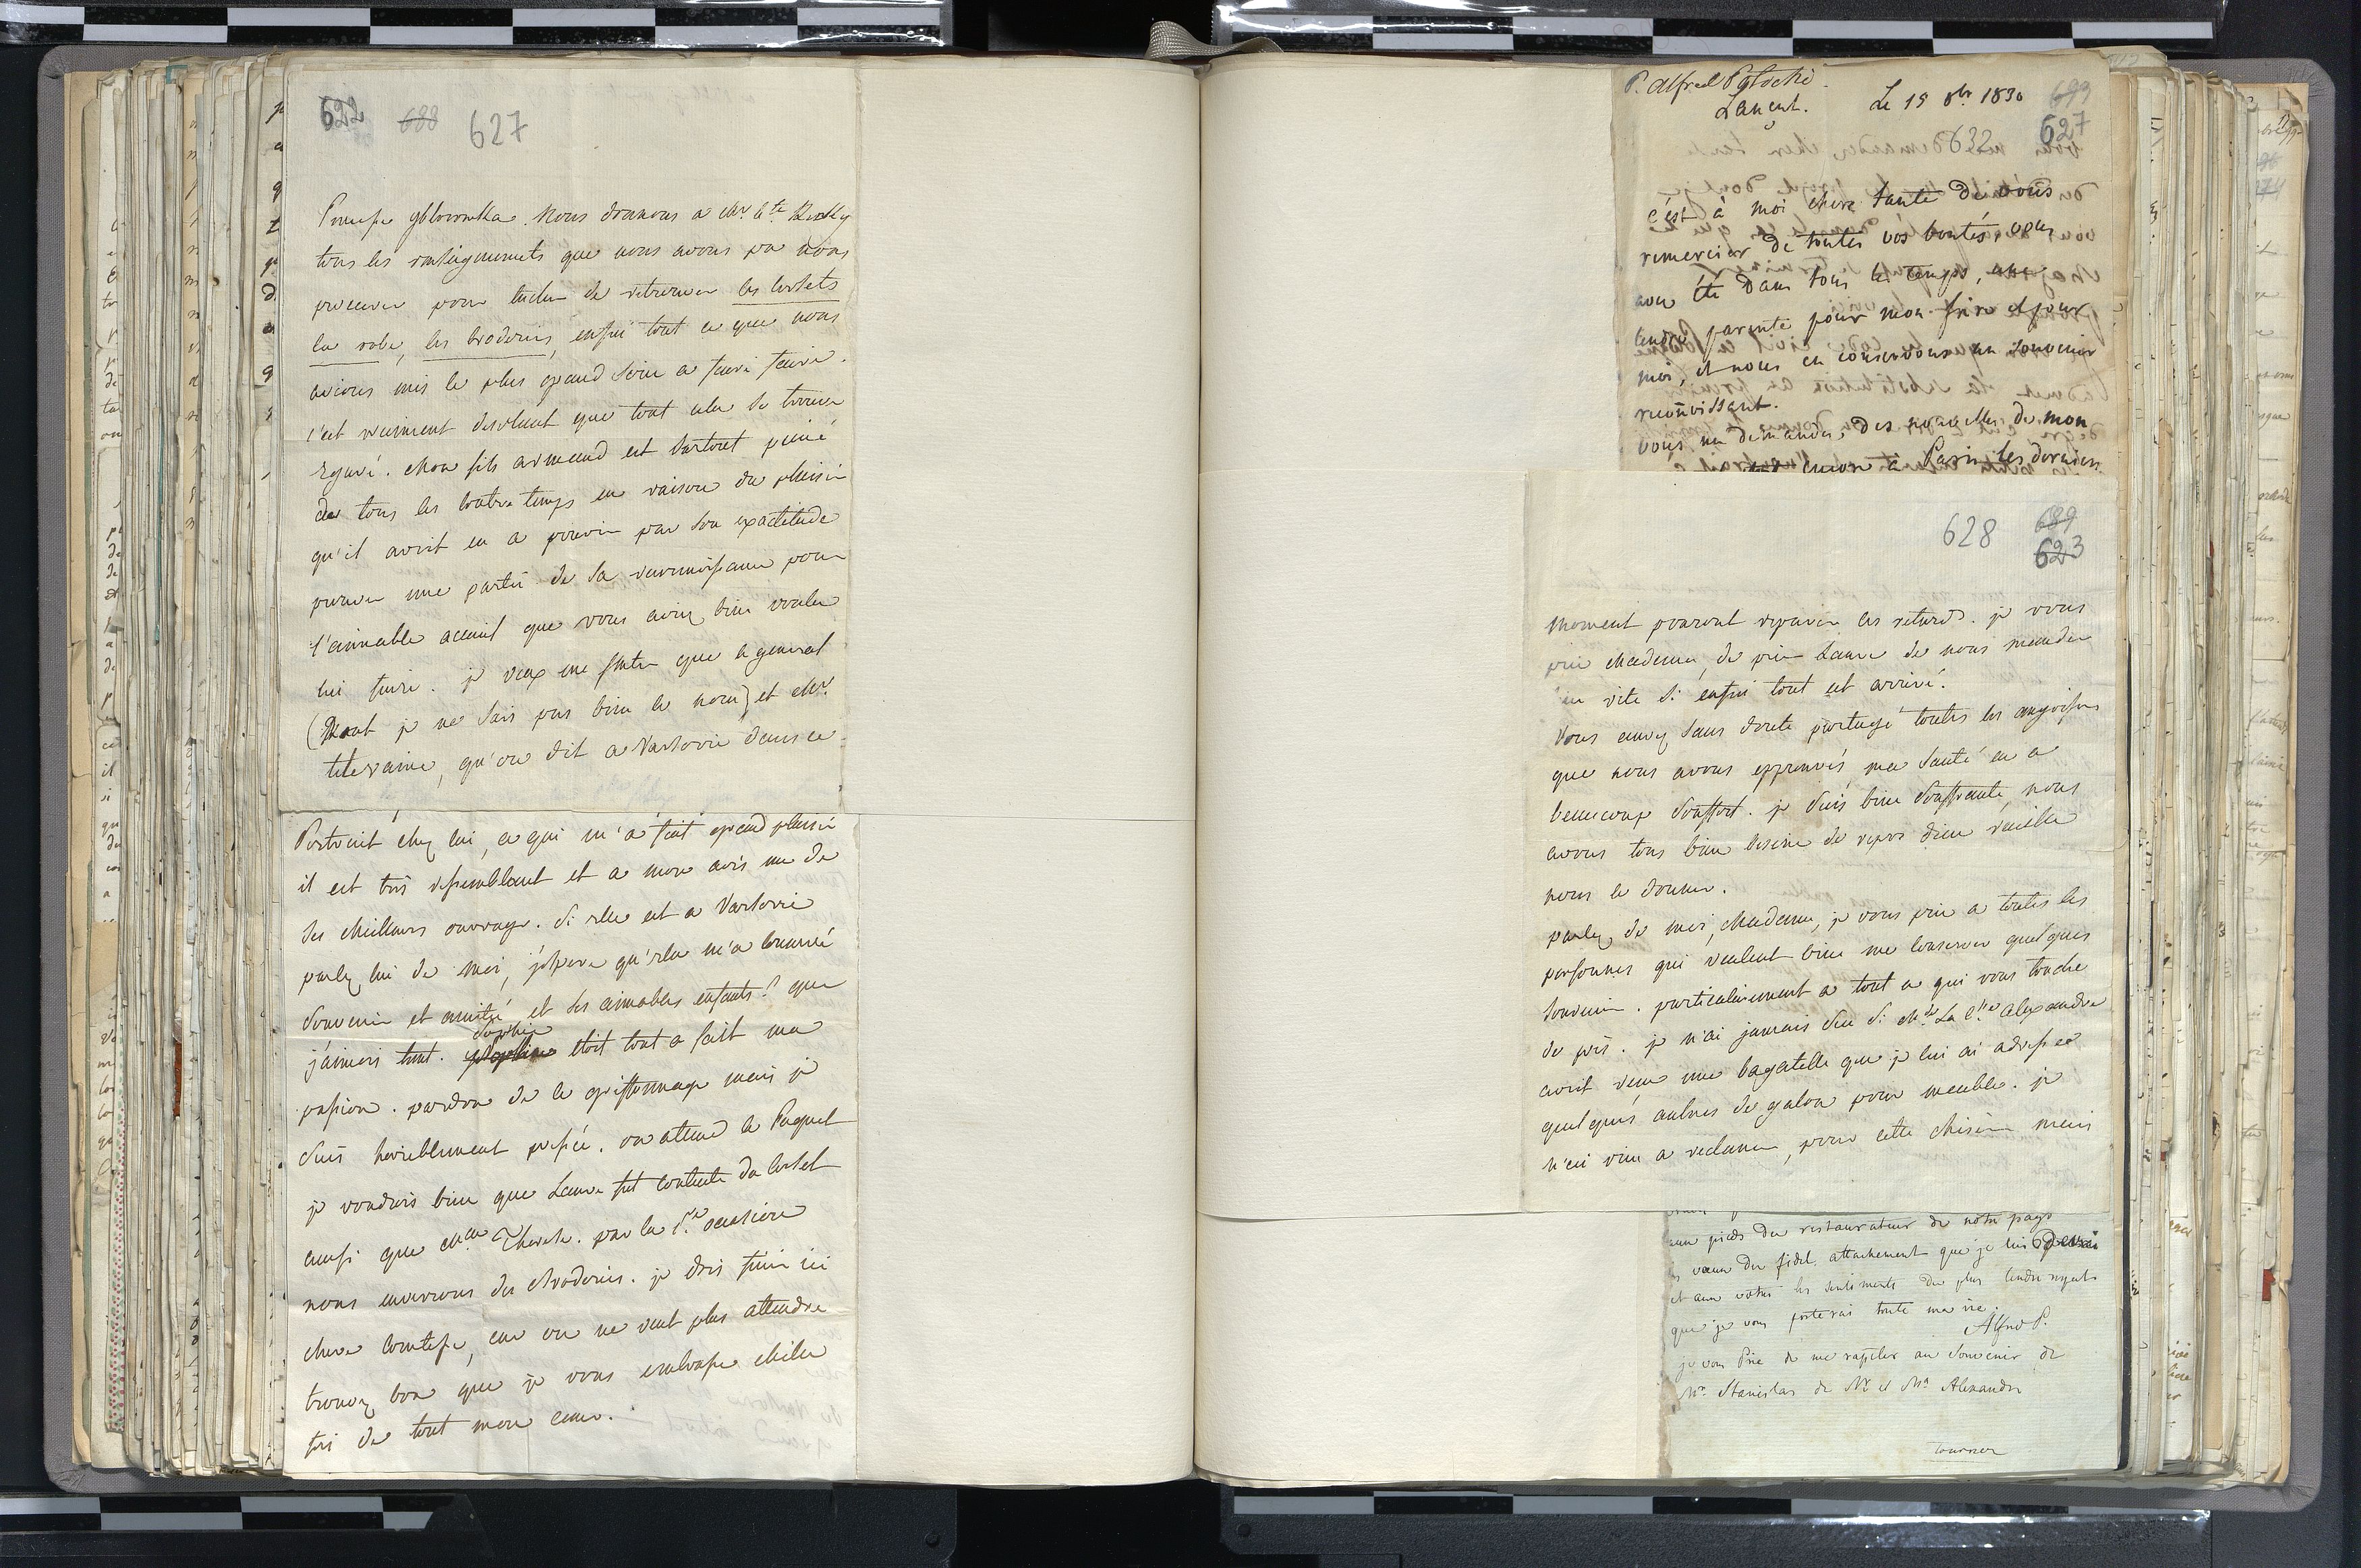 622 688 627
Princesse Jablonowska. Nous donnons a Mr le Cte
tous les renseignements que nous avons pu nous
procurer pour tacher de retrouver les corsets
la robe, les broderies, enfin tout ce que nous
avions mis le plus grand soin a faire faire.
c'est vraiment desolant que tout cela se trouve
egaré. Mon fils armand est surtout peiné
de tous les contre temps en raison du plaisir
qu'il avoit eu a pouvoir par son exactitude
prouver une partie de sa reconnoissance pour
l'aimable accueil que vous aviez bien voulu
lui faire. je veux me flater que le general
(dont je ne sais pas bien le nom) et Mr.
qu'on dit a Varsovie dans ce
Portrait chez lui, ce qui m'a fait grand plaisir
il est très ressemblant et a mon avis un de
ses Meilleurs ouvrages. Si elle est a Varsovie
parlez lui de moi, j'espere qu'elle m'a conservé
souvenir et amitié et ses aimables enfants? que
j'aimois tant. Sophie étoit tout a fait ma
passion. pardon de ce griffonnage mais je
suis horriblement pressée. on attend le Paquet
je voudrois bien que Laure fut contente du corset
ainsi que Mme Therese. par la 1re occasion
nous enverrons des Broderies. je dois finir ici
chere Comtesse, car on ne veut plus attendre
trouvez bon que je vous embrasse Mille
foi de tout mon coeur.
P. Alfred Potocki
Lançut. Le 15 8br 1830
693
627
632
c'est à moi chere tante de vous
remercier de toutes vos bontés, vous
avez été dans tous les temps, une
tendre parente pour mon frère et pour
moi, et nous en conservons un souvenir
reconnoissant.
vous me demandez des nouvelles de mon
encore à Paris les derniers
628 689
623
Moment pourront reparer les retards. je vous
prie Madame, de prier Laure de nous mander
bien vite si enfin tout est arrivé.
Vous aurez sans doute partagé toutes les angoisses
que nous avons epprouvés, ma santé en a
beaucoup souffert. je suis bien souffrante, nous
avons tous bien besoin de repos dieu veuille
nous le donner.
parlez de moi, Madame, je vous prie a toutes les
personnes qui veulent bien me conserver quelques
souvenir. particulierement a tout ce qui vous touche
de près. je n'ai jamais su si Mde La Ctesse Alexandre
avoit reçu une bagatelle que je lui ai adressée
quelques aulnes de galon pour meuble. je
n'ai rien a reclamer, pour cette Misère mais
aux pieds du restaurateur de notre pays
les voeux du fidel attachement que je lui
et aux votres les sentiments du plus tendre respect
que je vous porterai toute ma vie.
Alfred P.
je vous Prie de me rapeler au Souvenir de
Mr. Stanislas de Mr et Me Alexandre
tournez